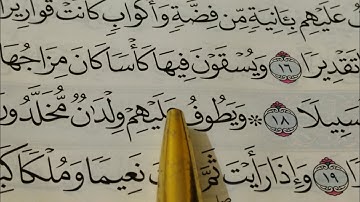 عَلَيْهِم بِـَٔانِيَةٍ مِّن فِضَّةٍ وَأَكْوَابٍ كَانَتْ قَوَارِيرَا۠
تَقْدِيرًا ١٦ وَيُسْقَوْنَ فِيهَا كَأْسًا كَانَ مِزَاجُهَا
سَبِيلًا ١٨ ۞ وَيَطُوفُ عَلَيْهِمْ وِلْدَٰنٌ مُّخَلَّدُونَ
١٩ وَإِذَا رَأَيْتَ ثَمَّ نَعِيمًا وَمُلْكًا